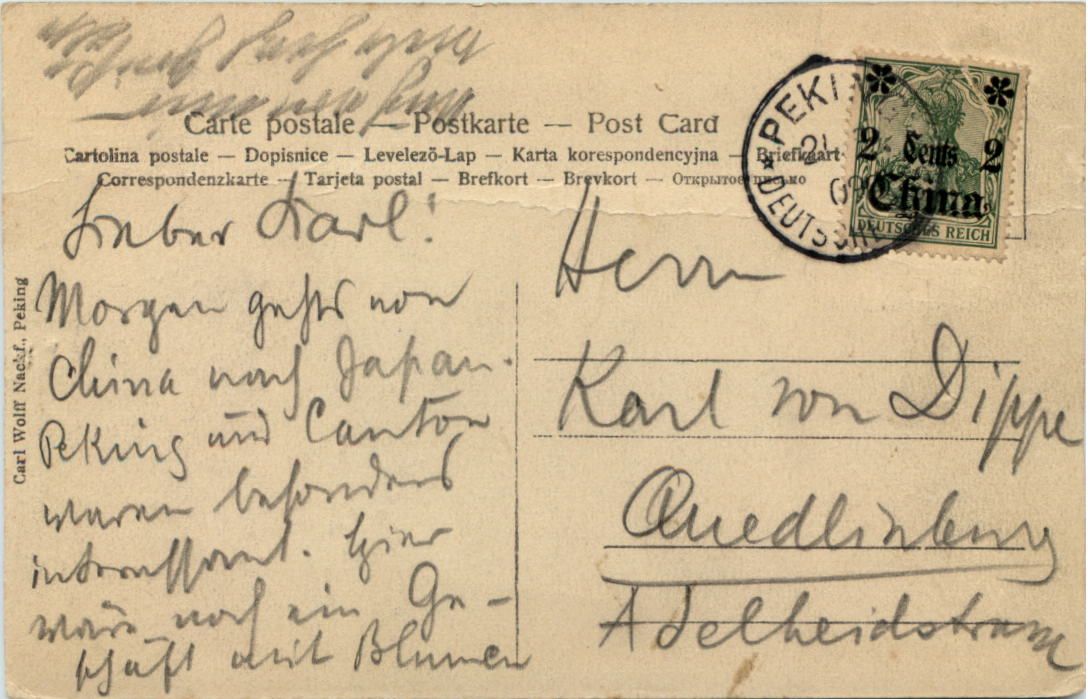 Carte postale — Postkarte — Post Card
Cartolina postale — Dopisnice — Levelező-Lap — Karta korespondencyjna — Briefkaart
Correspondenzkarte — Tarjeta postal — Brefkort — Brevkort — Открытое письмо
PEKING
DEUTSCHE
2 Cents 2
China
DEUTSCHES REICH
Carl Wolff Nachf., Peking
Lieber Karl!
Morgen gehts von
China nach Japan.
Peking und Canton
waren besonders
interessant. Hier
wäre noch ein Ge-
schäft mit Blumen
Herrn
Karl von Dippe
Quedlinburg
Adelheidstrasse